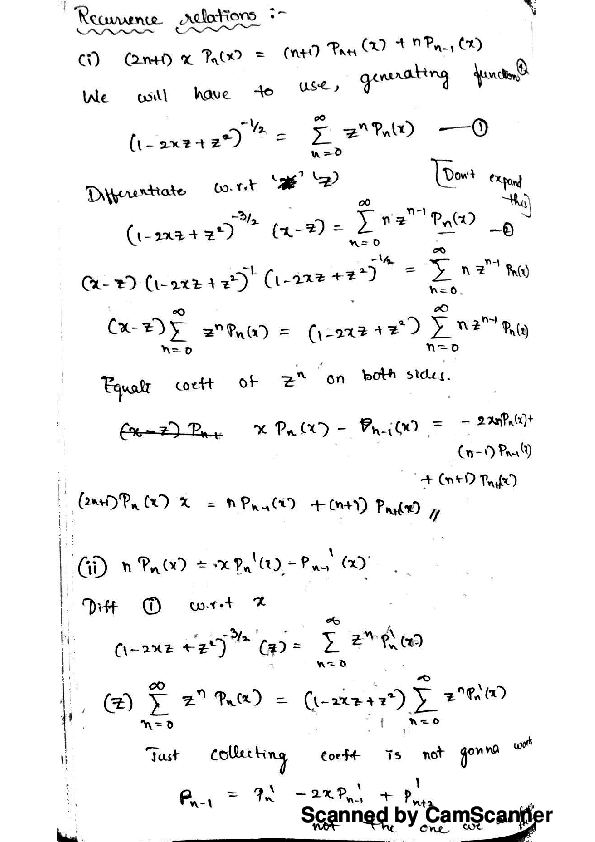 Recurrence relations :-
(i) (2n+1) x Pn(x) = (n+1) Pn+1 (x) + n Pn-1 (x)
We will have to use, generating function
(1-2xz+z²)^-1/2 = ∞ Σ n=0 z^n Pn(x) — ①
Differentiate w.r.t 'z' [Don't expand this]
(1-2xz+z²)^-3/2 (x-z) = ∞ Σ n=0 n z^n-1 Pn(x) — ②
(x-z) (1-2xz+z²)^-1 (1-2xz+z²)^-1/2 = ∞ Σ n=0 n z^n-1 Pn(x)
(x-z) ∞ Σ n=0 z^n Pn(x) = (1-2xz+z²) ∞ Σ n=0 n z^n-1 Pn(x)
Equate coeft of z^n on both sides.
(x-z) Pn+ x Pn(x) - Pn-1(x) = -2xnPn(x)+
(n-1) Pn-1(x)
+ (n+1) Pn+1(x)
(2n+1) Pn (x) x = n Pn-1(x) + (n+1) Pn+1(x) //
(ii) n Pn(x) = x Pn'(x) - Pn-1'(x)
Diff ① w.r.t x
(1-2xz+z²)^-3/2 (z) = ∞ Σ n=0 z^n Pn'(x)
(z) ∞ Σ n=0 z^n Pn(x) = (1-2xz+z²) ∞ Σ n=0 z^n Pn'(x)
Just collecting coeft is not gonna work
Pn-1 = Pn' - 2x Pn-1' + P'n+2
Scanned by CamScanner
not the one we